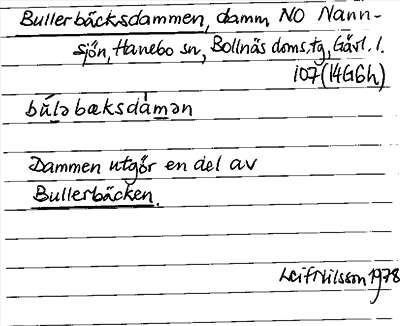 Bullerbäcksdammen, damm, NO Nann-
sjön, Hanebo sn, Bollnäs doms.tg, Gävl. l.
107 (14G6h)
búl̲ə bæksdám̲ən
Dammen utgör en del av
Bullerbäcken.
Leif Nilsson 1978